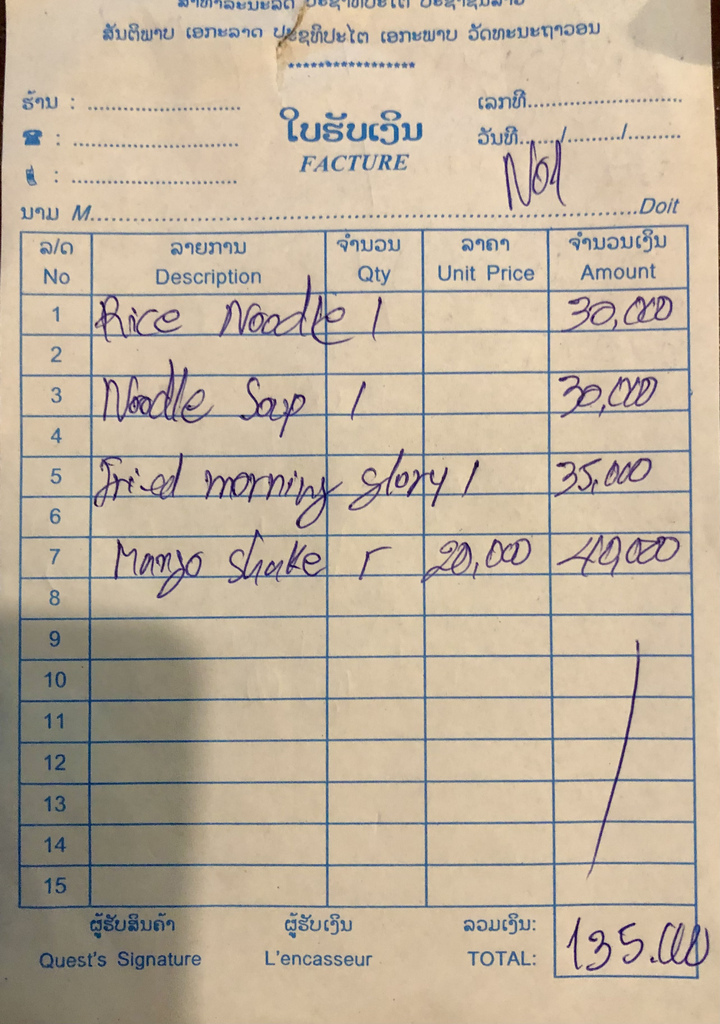 ສາທາລະນະລັດ ປະຊາທິປະໄຕ ປະຊາຊົນລາວ
ສັນຕິພາບ ເອກະລາດ ປະຊາທິປະໄຕ ເອກະພາບ ວັດທະນະຖາວອນ
*****************
ຮ້ານ : ............................
ເລກທີ............................
ໃບຮັບເງິນ
☎ : ..............................
ວັນທີ......../........../.........
FACTURE
: ..............................
No1
ນາມ M............................................................Doit
ລ/ດ ລາຍການ ຈຳນວນ ລາຄາ ຈຳນວນເງິນ
No Description Qty Unit Price Amount
1 Rice Noodle 1 30,000
2
3 Noodle Soup 1 30,000
4
5 Fried morning glory 1 35,000
6
7 Manjo shake 20,000 40,000
8
9
10
11
12
13
14
15
ຜູ້ຮັບສິນຄ້າ ຜູ້ຮັບເງິນ ລວມເງິນ:
Quest's Signature L'encasseur TOTAL: 135.000